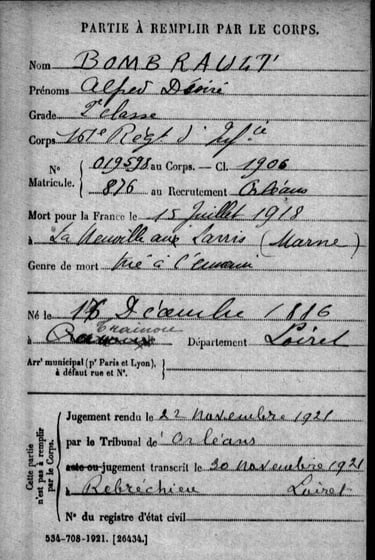 PARTIE À REMPLIR PAR LE CORPS.
Nom BOMBRAULT
Prénoms Alfred Désiré
Grade 2e classe
Corps 161e Régt d'Infie
N° Matricule. { 019598 au Corps. — Cl. 1906
876 au Recrutement Orléans
Mort pour la France le 15 Juillet 1918
à La Neuville aux Larris (Marne)
Genre de mort tué à l'ennemi
Né le 16 Décembre 1886
à Trainou Département Loiret
Arr' municipal (p' Paris et Lyon),
à défaut rue et N°.
Cette partie n'est pas à remplir par le Corps.
Jugement rendu le 22 novembre 1921
par le Tribunal de Orléans
acte ou jugement transcrit le 30 novembre 1921
à Rebréchien Loiret
N° du registre d'état civil
534-708-1921. [26434.]